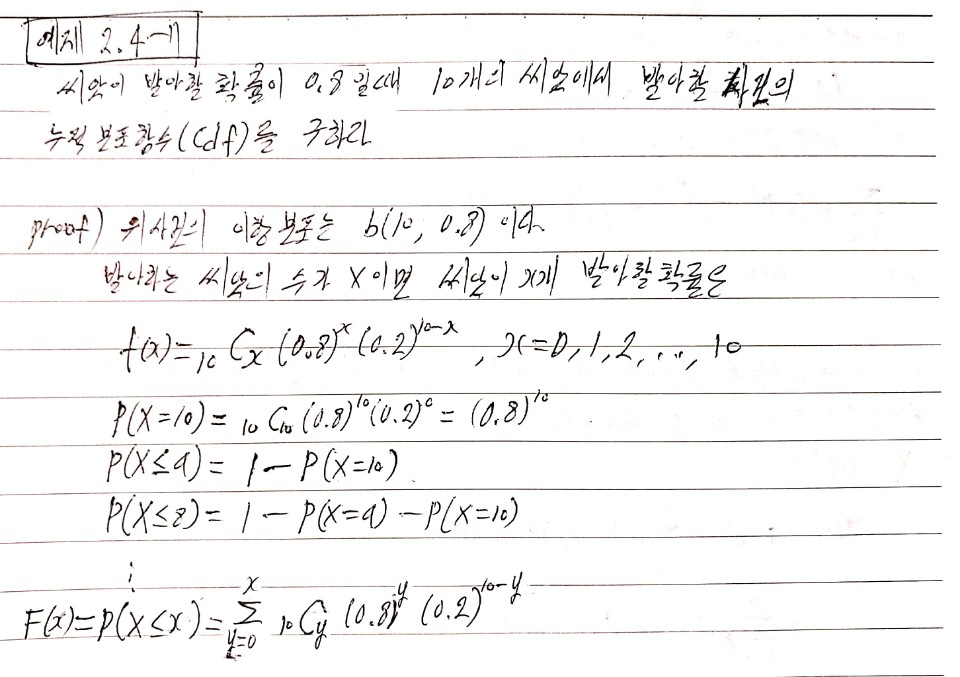 예제 2.4-11
씨앗이 발아할 확률이 0.8일때 10개의 씨앗에서 발아할 사건의
누적 분포함수(cdf)를 구하라
proof) 위사건의 이항분포는 b(10, 0.8) 이다.
발아하는 씨앗의 수가 X이면 씨앗이 x개 발아할 확률은
f(x)= ₁₀Cₓ (0.8)ˣ (0.2)¹⁰⁻ˣ , x=0,1,2,...,10
P(X=10)= ₁₀C₁₀ (0.8)¹⁰(0.2)⁰ = (0.8)¹⁰
P(X≤9)= 1-P(X=10)
P(X≤8)= 1-P(X=9)-P(X=10)
⋮
F(x)=P(X≤x)= \sum_{y=0}^{x} ₁₀C_y (0.8)^y (0.2)^{10-y}